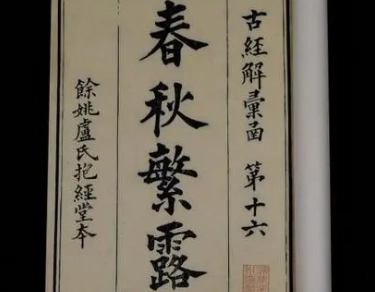 古經解彙函 第十六
春秋繁露
餘姚盧氏抱經堂本